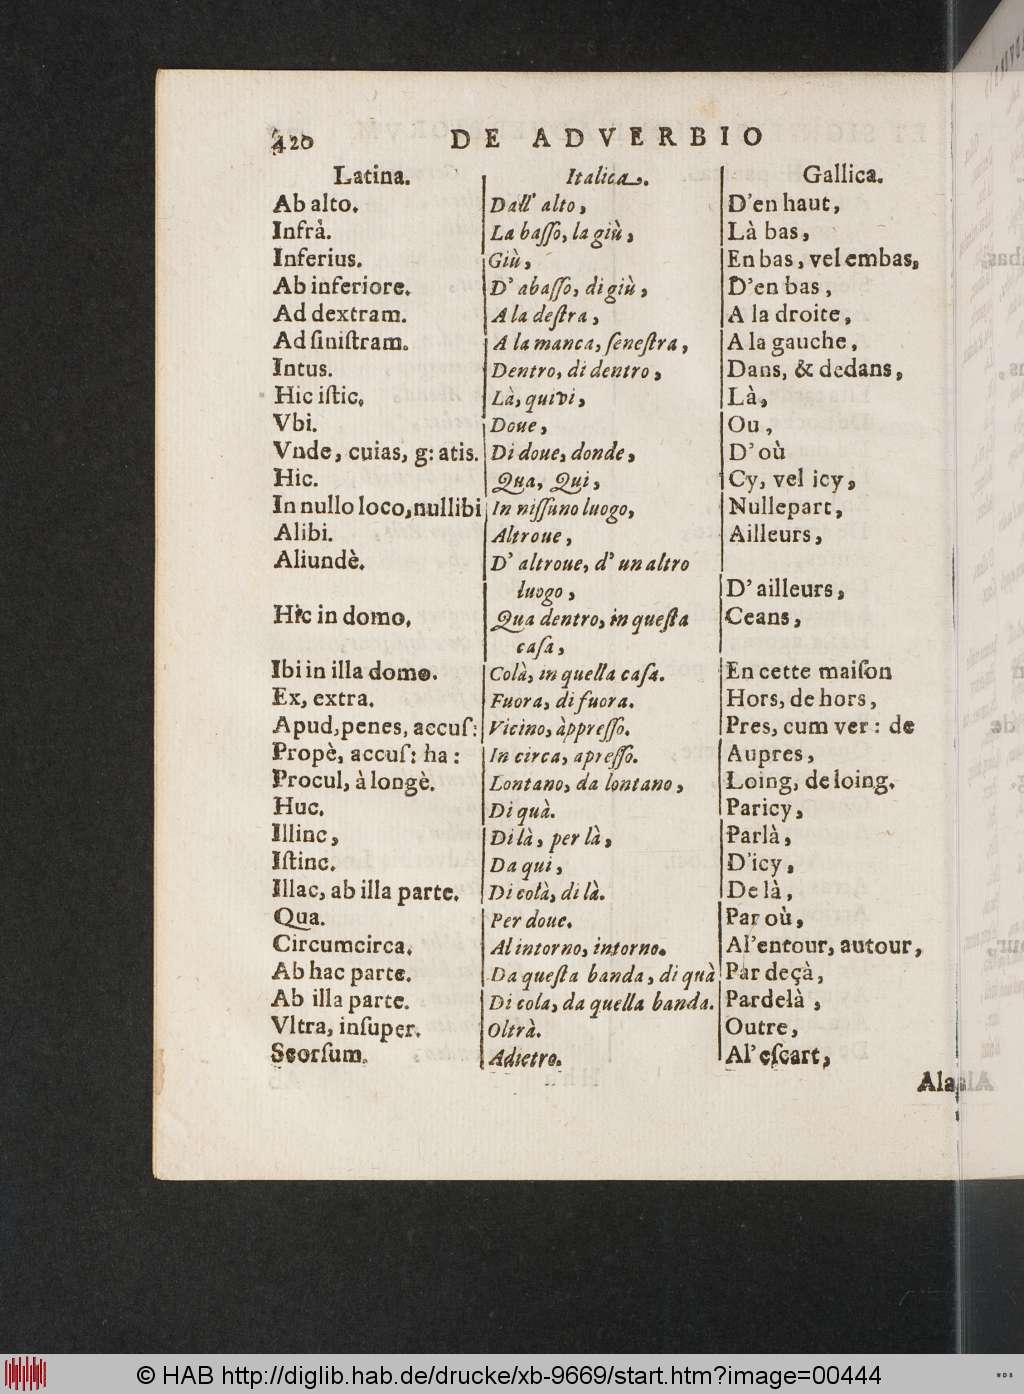 420 DE ADVERBIO
Latina. Italica. Gallica.
Ab alto. Dall' alto, D'en haut,
Infrà. La baſſo, la giù, Là bas,
Inferius. Giù, En bas, vel embas,
Ab inferiore. D' abaſſo, di giù, D'en bas,
Ad dextram. A la deſtra, A la droite,
Ad ſiniſtram. A la manca, ſeneſtra, A la gauche,
Intus. Dentro, di dentro, Dans, & dedans,
Hic iſtic. Là, quivi, Là,
Vbi. Doue, Ou,
Vnde, cuias, g: atis. Di doue, donde, D'où
Hic. Qua, Qui, Cy, vel icy,
In nullo loco, nullibi In niſſuno luogo, Nullepart,
Alibi. Altroue, Ailleurs,
Aliundè. D' altroue, d' un altro
luogo, D'ailleurs,
Hic in domo. Qua dentro, in queſta Ceans,
caſa,
Ibi in illa domo. Colà, in quella caſa. En cette maiſon
Ex, extra. Fuora, di fuora. Hors, de hors,
Apud, penes, accuſ: Vicino, àppreſſo. Pres, cum ver: de
Propè, accuſ: ha: In circa, apreſſo. Aupres,
Procul, à longè. Lontano, da lontano, Loing, de loing.
Huc. Di quà. Paricy,
Illinc, Di là, per là, Parlà,
Iſtinc. Da qui, D'icy,
Illac, ab illa parte. Di colà, di là. De là,
Qua. Per doue. Par où,
Circumcirca. Al intorno, intorno. Al'entour, autour,
Ab hac parte. Da queſta banda, di quà Par deçà,
Ab illa parte. Di cola, da quella banda. Pardelà,
Vltra, inſuper. Oltrà. Outre,
Seorſum. Adietro. Al'eſcart,
Ala
© HAB http://diglib.hab.de/drucke/xb-9669/start.htm?image=00444